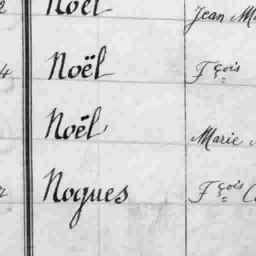 Noël Jean
Noël Fçois
Noël Marie
Nogues Fçois